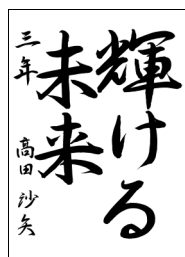 輝ける
未来
三年 高田沙矢